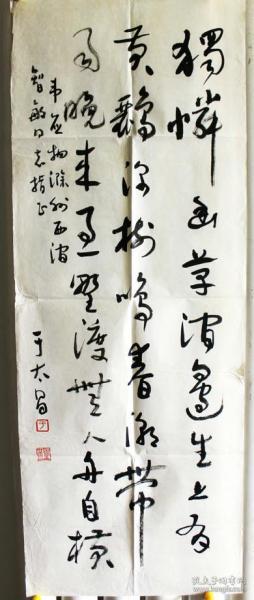 獨憐幽草澗邊生上有
黃鸝深樹鳴春潮帶
雨晚來急野渡無人舟自橫
韦应物滁州西澗
智敏同志指正
于太昌
孔夫子旧书网